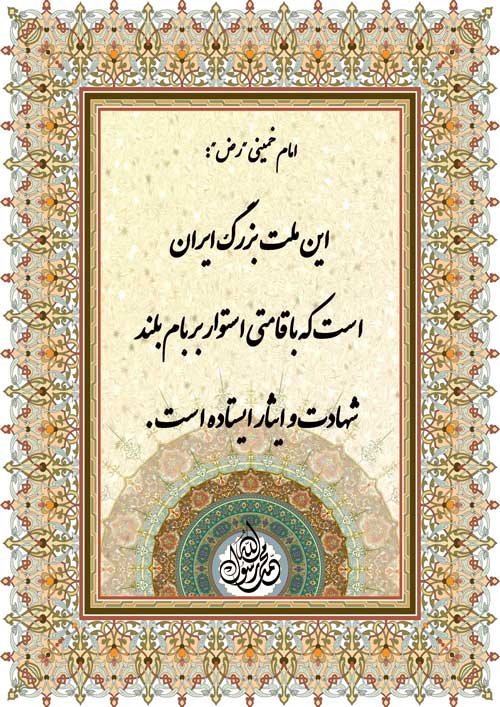 امام خمینی "رض":
این ملت بزرگ ایران
است که با قامتی استوار بر بام بلند
شهادت و ایثار ایستاده است.
محمد رسول الله